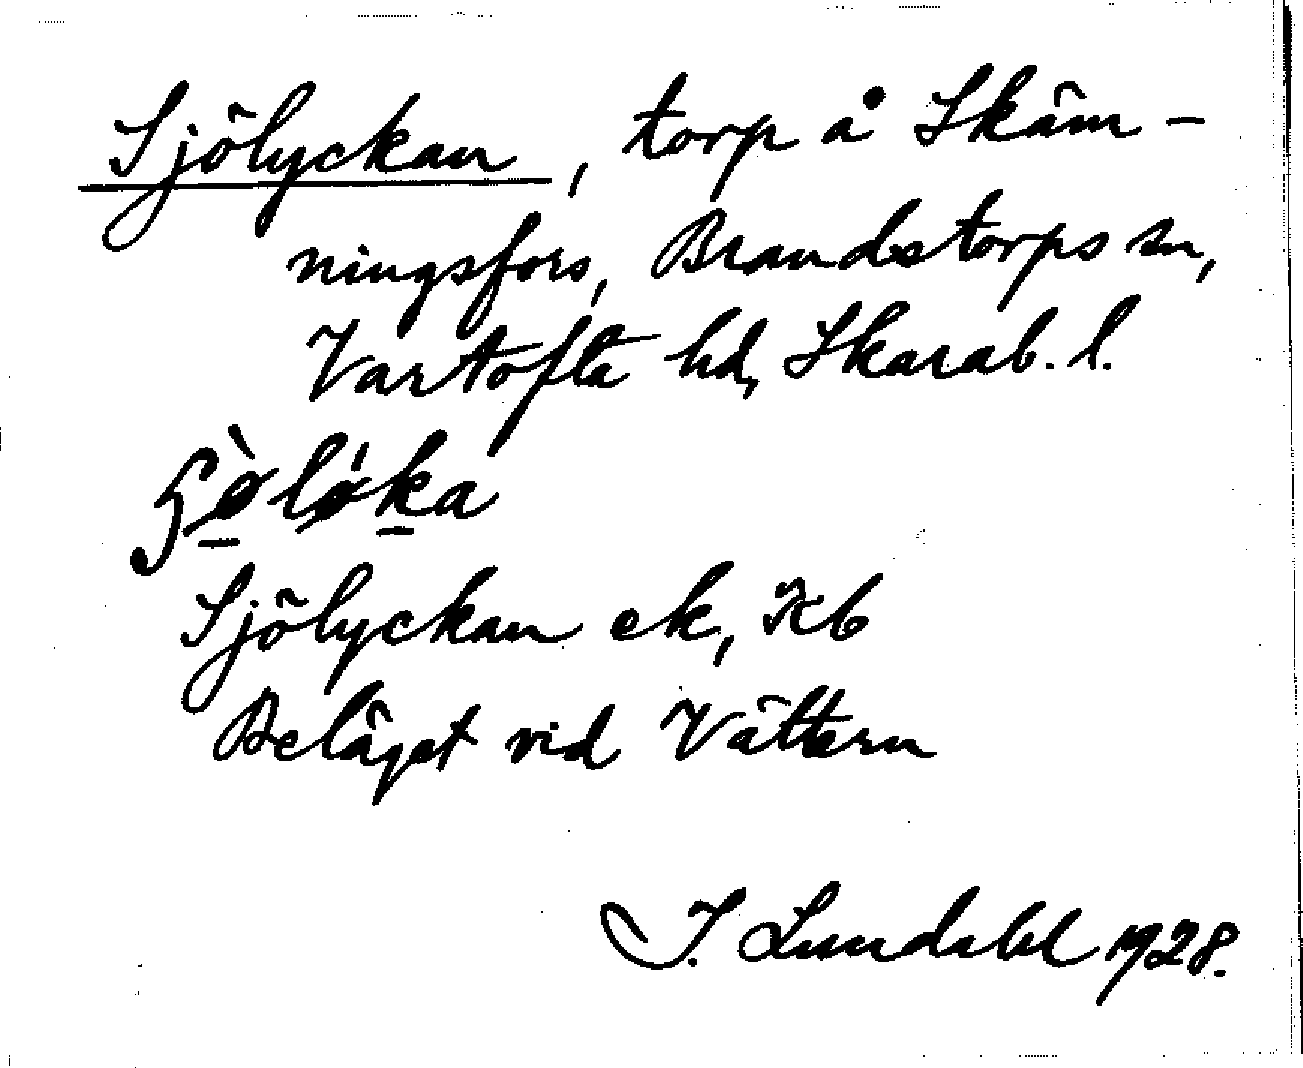 Sjölyckan, torp å Skäm-
ningsfors, Brandstorps sn,
Vartofta hd, Skarab. l.
Sjölyckan ek, Kb
Beläget vid Vättern
I. Lundahl 1928.